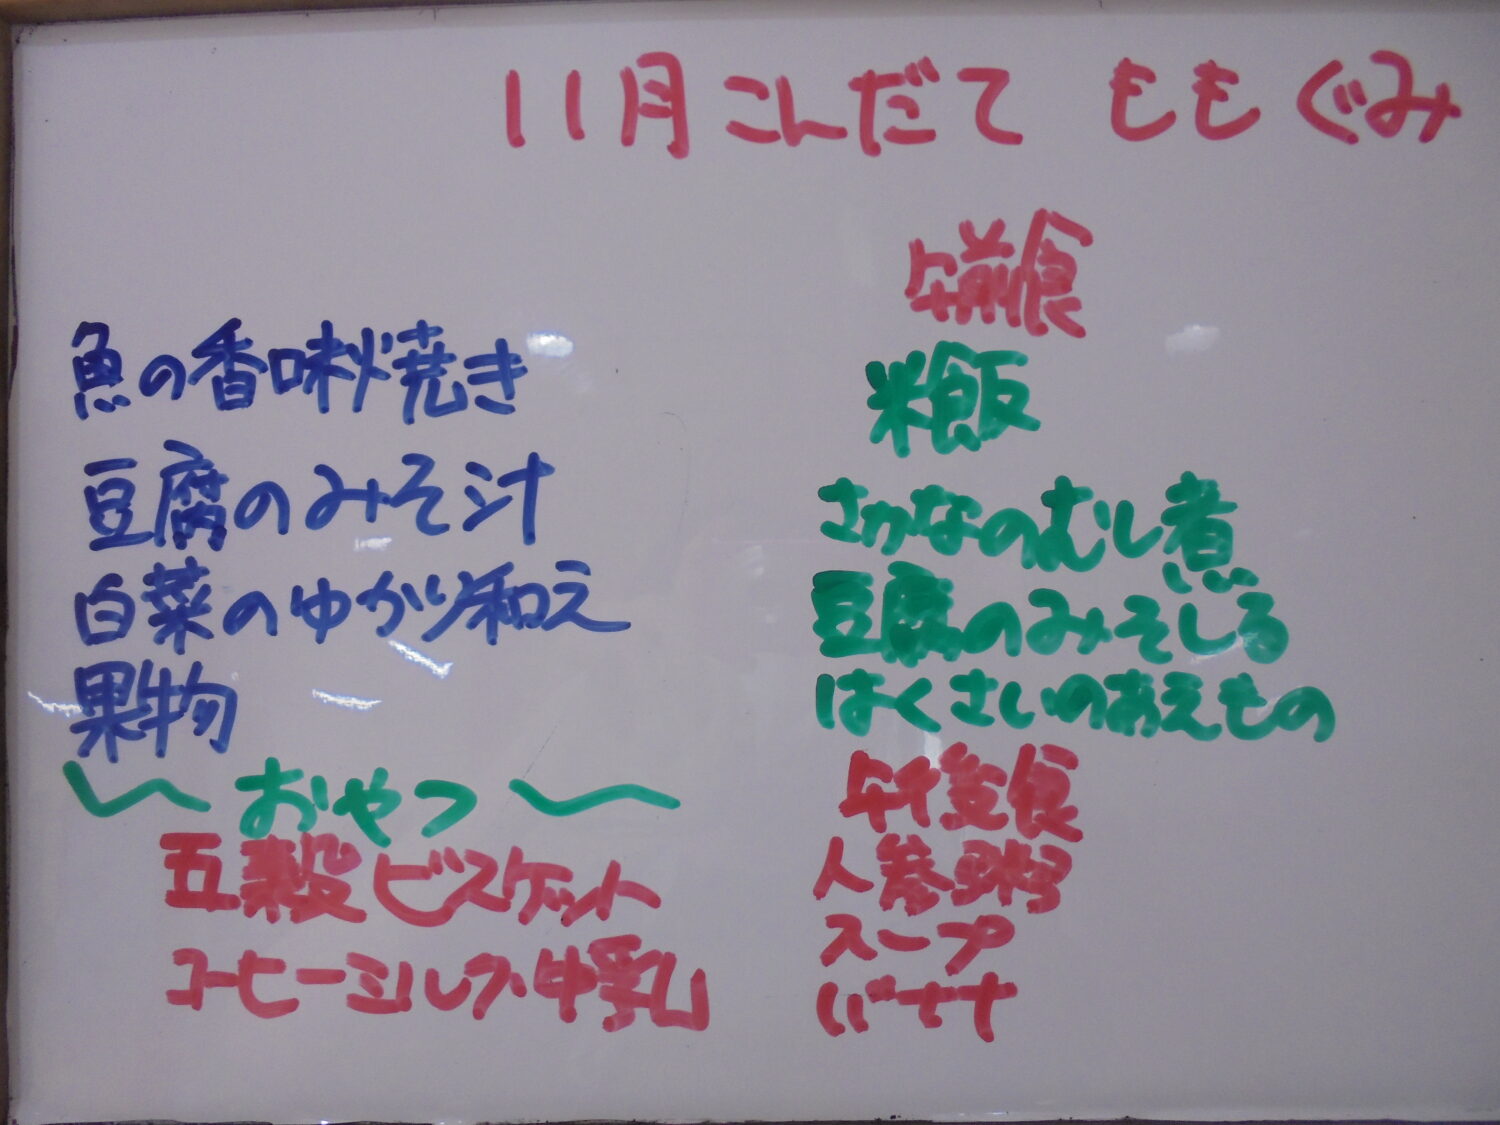 11月こんだて ももぐみ
魚の香味焼き
豆腐のみそ汁
白菜のゆかり和え
果物
おやつ
五穀ビスケット
コーヒーミルク 牛乳
午前食
米飯
さかなのむし煮
豆腐のみそしる
はくさいのあえもの
午後食
人参粥
スープ
バナナ